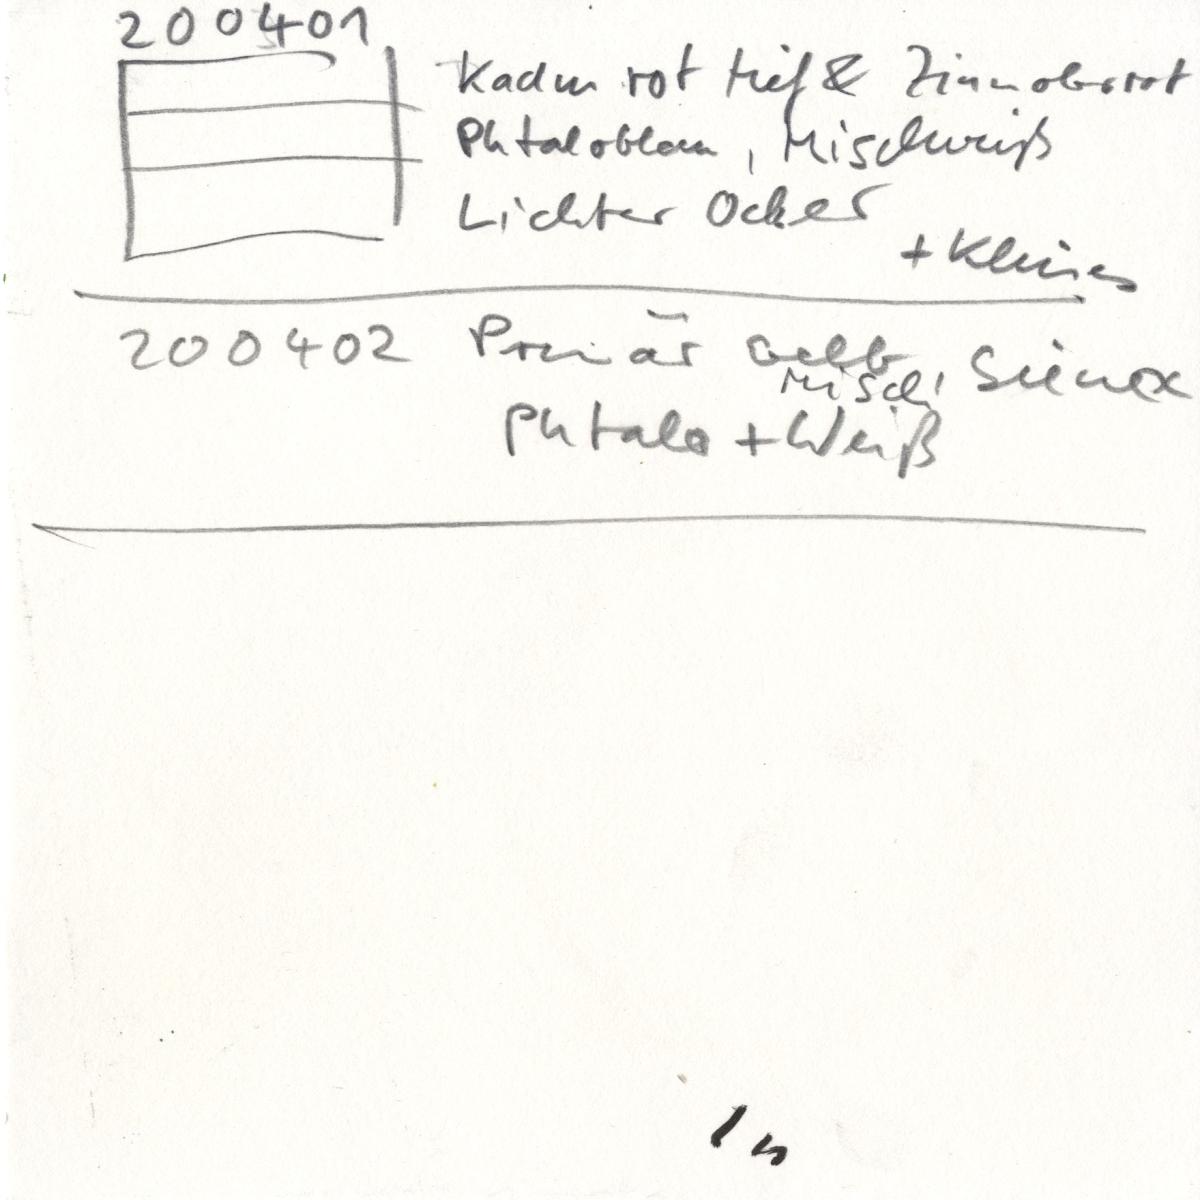 200401
Kadm rot tief & Zinnoberrot
Phtaloblau, Mischweiß
Lichter Ocker
+ Kleines
200402 Primär Gelb, Siena
Misch
Phtalo + Weiß